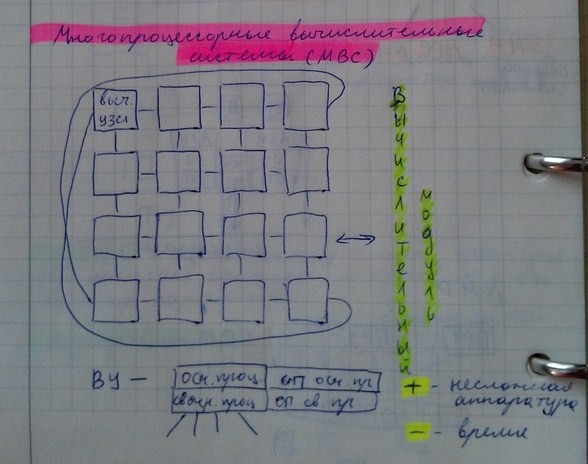 Многопроцессорные вычислительные
системы (МВС)
выч.
узел
Вычислительный
модуль
ВУ —
осн. проц.
ОП осн пр.
связн. проц
ОП св. пр.
+ - несложная
аппаратура
- - время